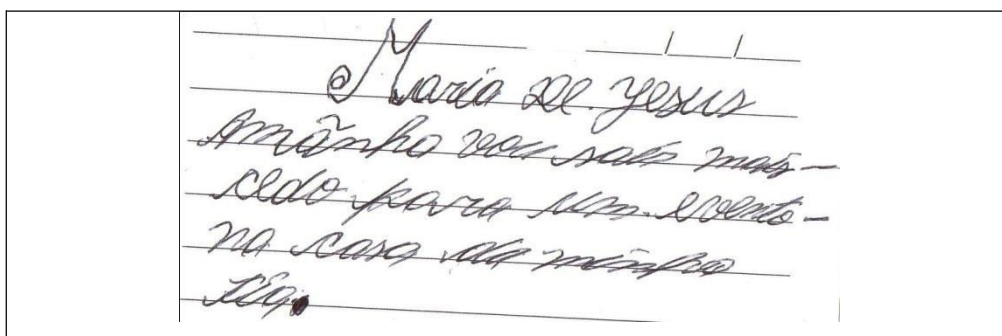 Maria De. Jesus
Amãnha vou sair mais-
cedo para um evento-
na casa da minha
tia.